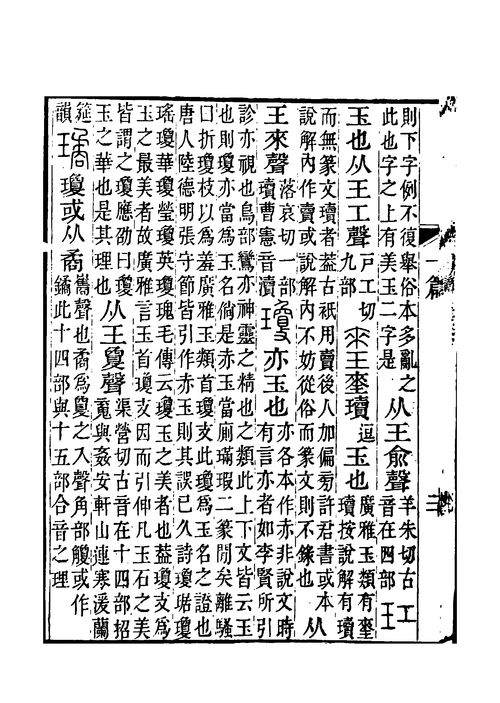 則下字例不復舉俗本多亂之
此也字之上有美玉二字是
从王俞聲
羊朱切古
音在四部
玒
玉也从王工聲
戶工切
九部
㻍
㻍瓄
逗
玉也
廣雅玉類有㻍
瓄按說解有瓄
而無篆文瓄者葢古衹用賣後人加偏㫄許君書或本
說解內作賣或說解內不妨從俗而篆文則不錄也
从
王來聲
落哀切一部
瓄曹憲音瀆
瓊
亦玉也
亦各本作赤非說文時
有言亦者如李賢所引
診亦視也鳥部鸞亦神靈之精也之類此上下文皆云玉
也則瓊亦當爲玉名倘是赤玉當廁璊瑕二篆閒矣離騷
曰折瓊枝以爲羞廣雅玉類首瓊支此瓊爲玉名之證也
唐人陸德明張守節皆引作赤玉則其誤已久詩瓊琚瓊
瑤瓊華瓊瑩瓊英瓊瑰毛傳云瓊玉之美者也葢瓊支爲
玉之最美者故廣雅言玉首瓊支因而引伸凡玉石之美
皆謂之瓊應劭曰瓊
玉之華也是其理也
从王敻聲
渠營切古音在十四部招
䰟與姦安軒山連寒湲蘭
筵
韻
璚
瓊或从矞
巂聲也矞爲敻之入聲角部觼或作
鐍此十四部與十五部合音之理
一篇